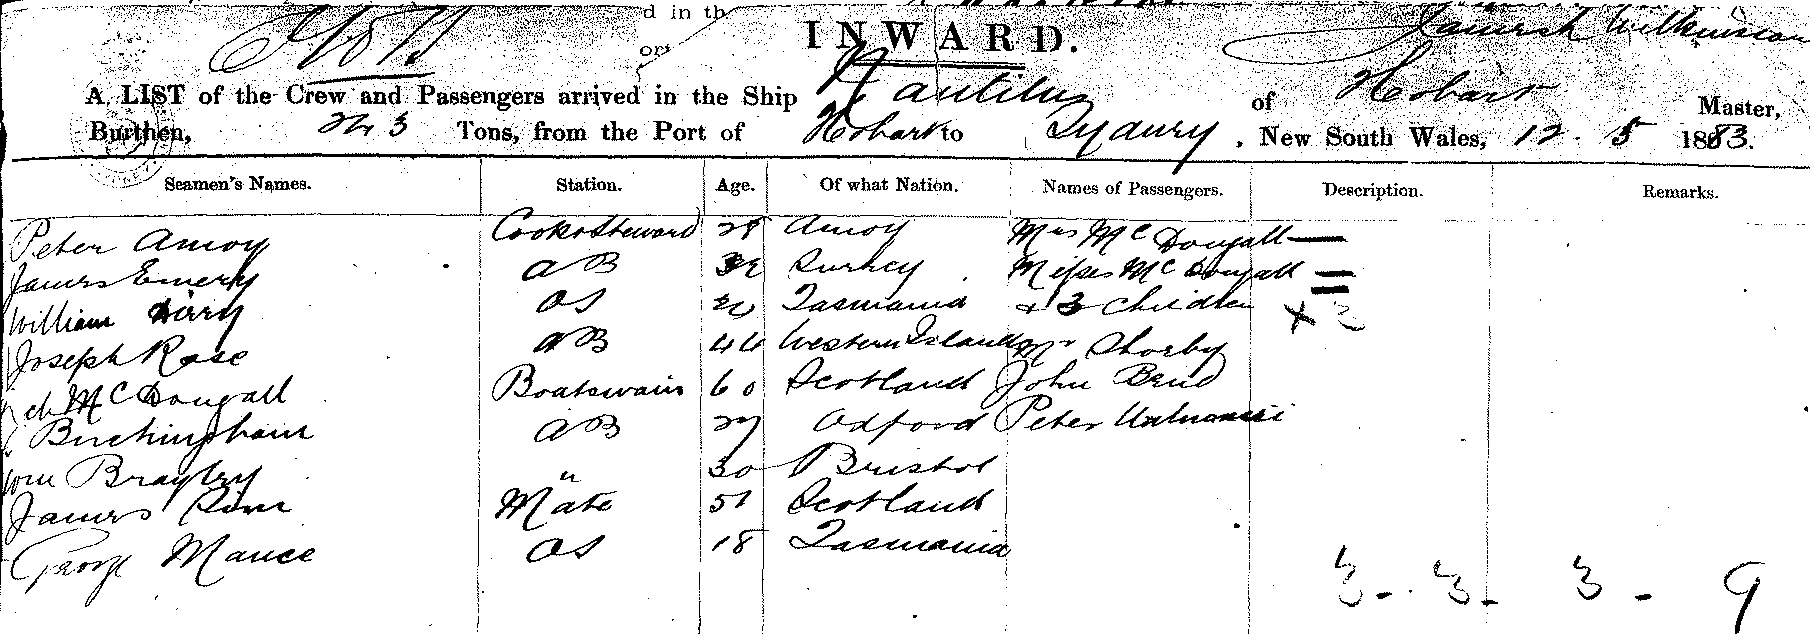 d in th
or
INWARD.
Wilkinson
A LIST of the Crew and Passengers arrived in the Ship Nautilus of Hobart Master,
Burthen, 243 Tons, from the Port of Hobart to Sydney, New South Wales, 12. 5 1883.
Seamen's Names. Station. Age. Of what Nation. Names of Passengers. Description. Remarks.
Peter Amoy Cook & Steward 28 Amoy Mrs McDougall
James Emery AB 32 Turkey Misses McDougall
William OS Tasmania + 3 Children x 2
Joseph Rose AB 44 Western Islands Mr Shorby
McDougall Boatswain 60 Scotland John
Buckingham AB 27 Oxford Peter
Wm Brayley " 30 Bristol
James Sim Mate 51 Scotland
George Mance OS 18 Tasmania
3 - 3 - 3 - 9